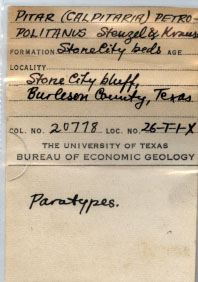 PITAR (CALPITARIA) PETRO-
POLITANUS Stenzel & Krause
FORMATION Stone City beds AGE
LOCALITY
Stone City bluff,
Burleson County, Texas
COL. NO. 20778 LOC. NO. 26-T-1-X
THE UNIVERSITY OF TEXAS
BUREAU OF ECONOMIC GEOLOGY
Paratypes.